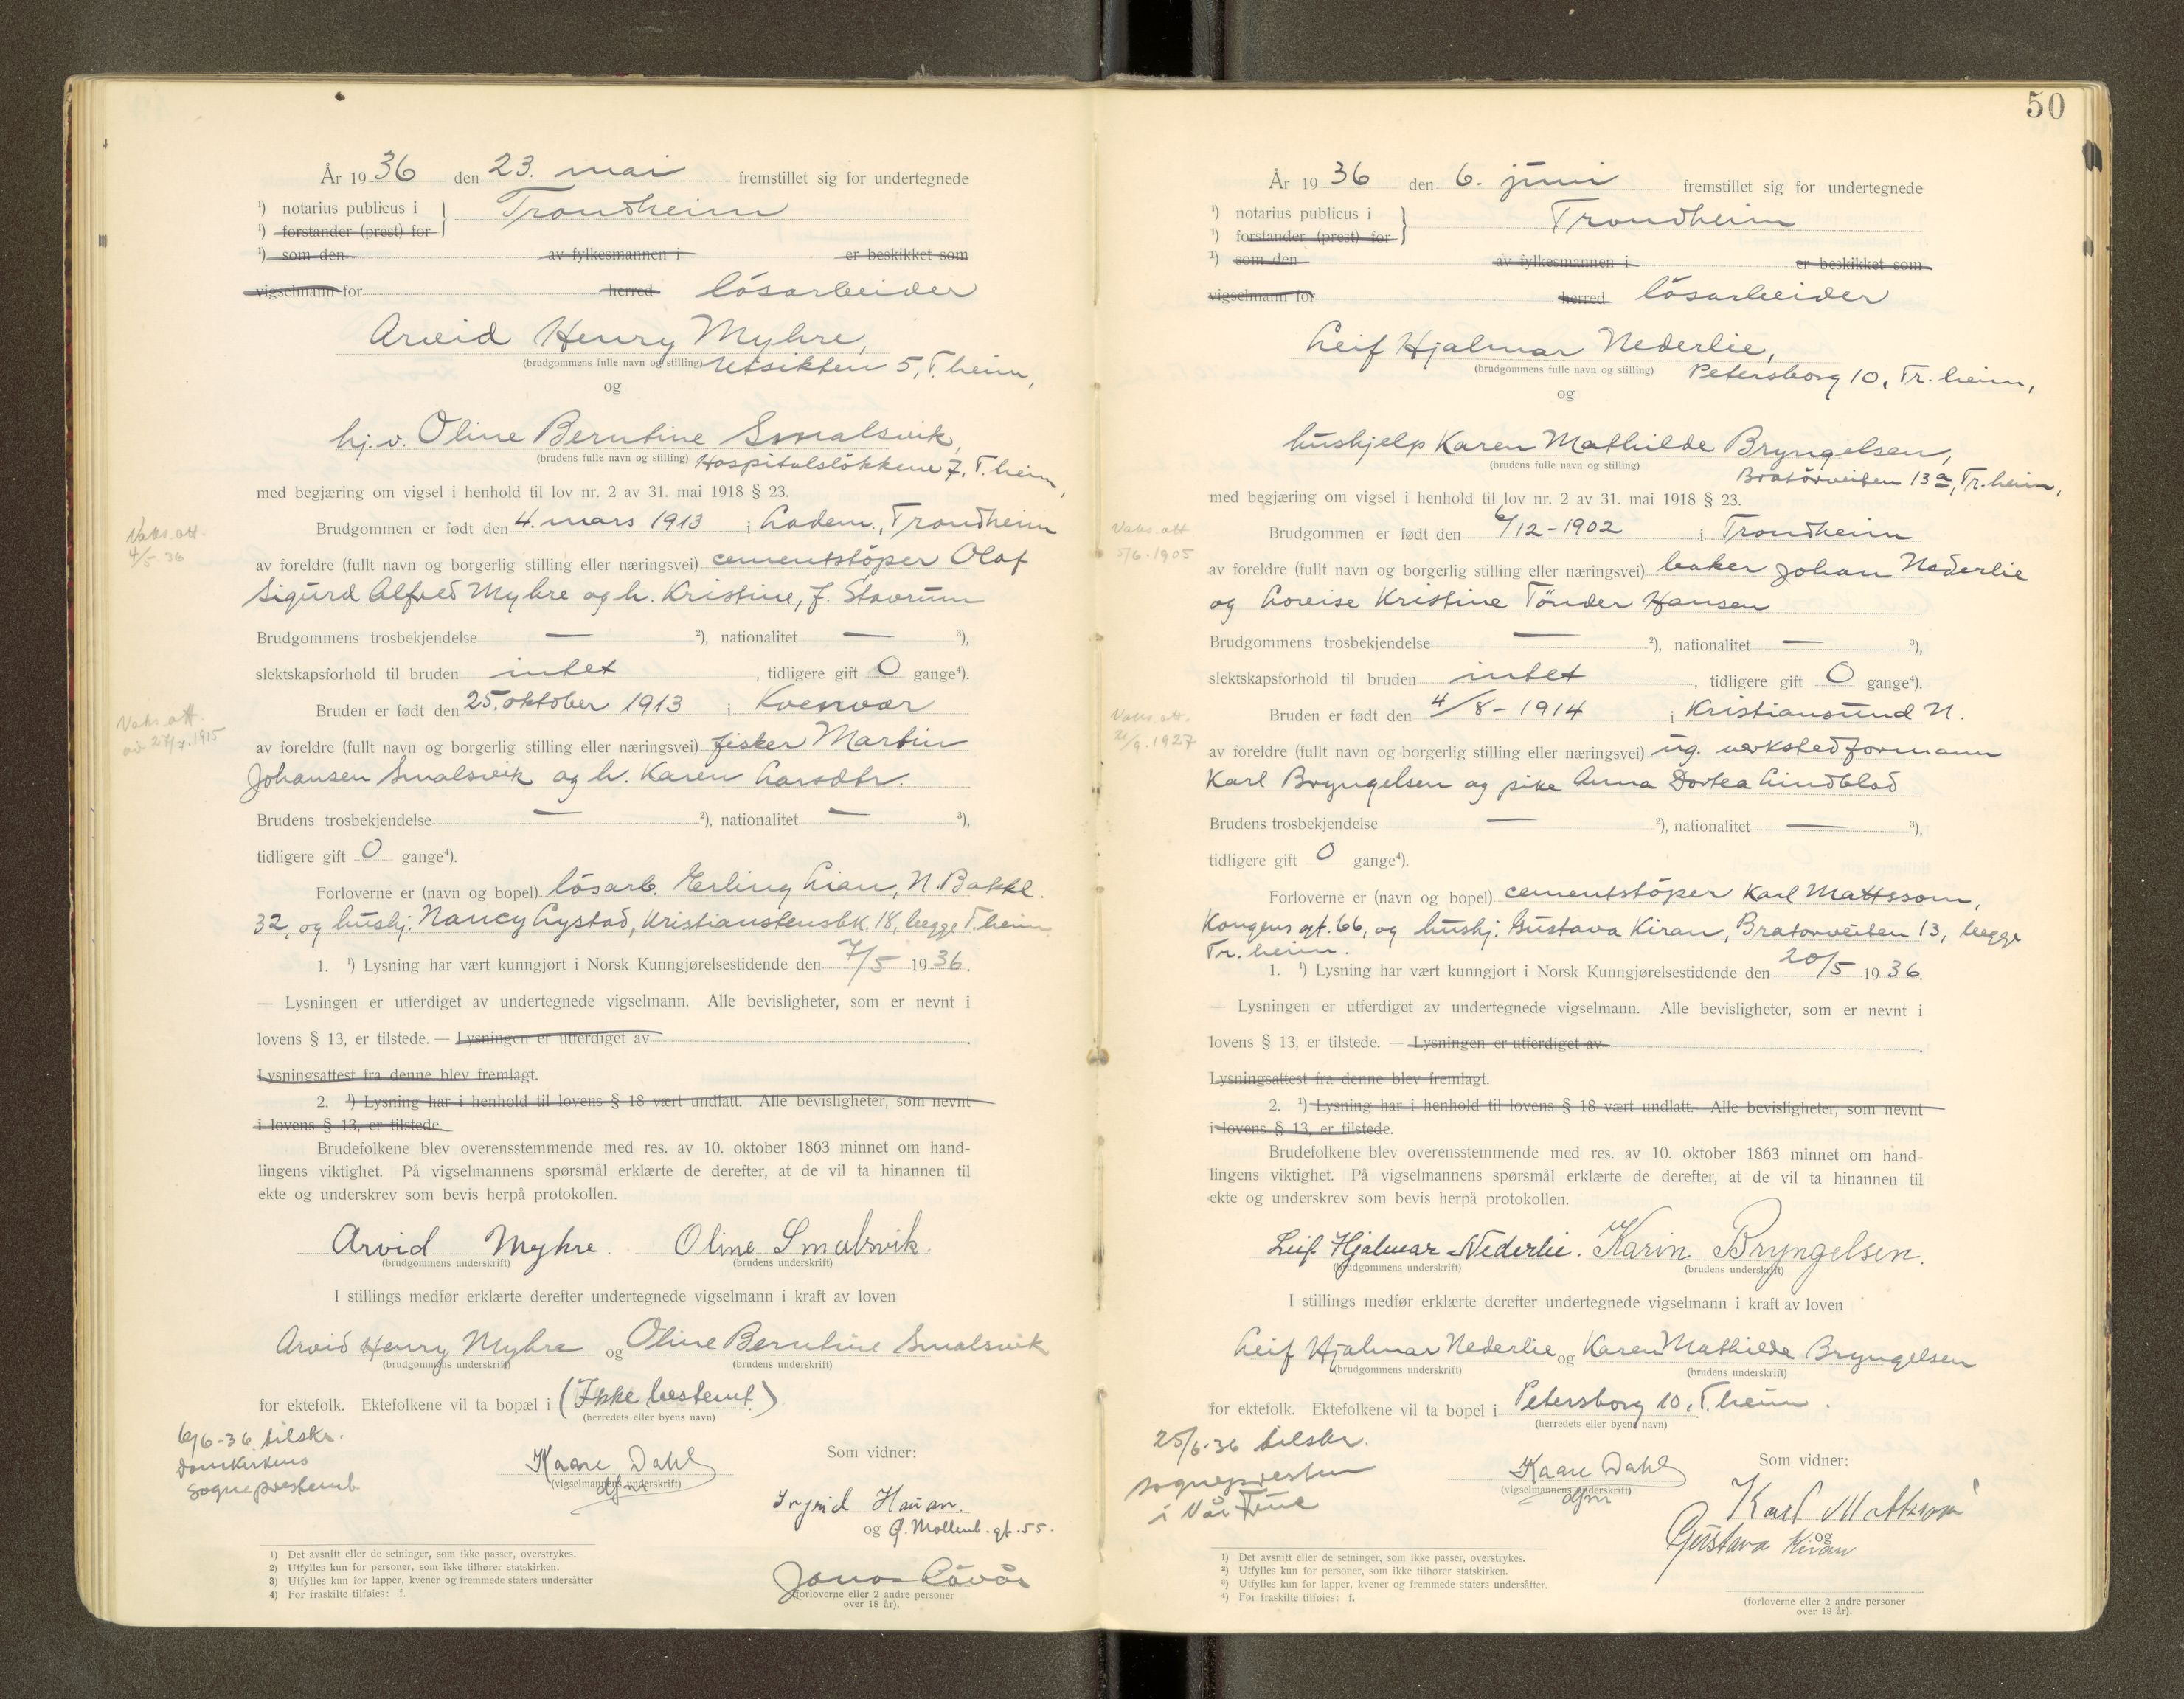 År 1936 den 23. mai fremstillet sig for undertegnede
¹) notarius publicus i } Trondheim
¹) forstander (prest) for
¹) som den av fylkesmannen i er beskikket som
vigselmann for herred lösarbeider
Arvid Henry Myhre,
(brudgommens fulle navn og stilling) Utsikten 5, T.heim,
og
hj.v. Oline Berntine Smalsvik,
(brudens fulle navn og stilling) Hospitalslökkene 7, T.heim,
med begjæring om vigsel i henhold til lov nr. 2 av 31. mai 1918 § 23.
Vaks.att.
4/5 36
Brudgommen er født den 4. mars 1913 i Ladem., Trondheim
av foreldre (fullt navn og borgerlig stilling eller næringsvei) cementstöper Olaf
Sigurd Alfred Myhre og h. Kristine, f. Stavrum
Brudgommens trosbekjendelse — ²), nationalitet — ³),
slektskapsforhold til bruden intet , tidligere gift 0 gange⁴).
Vaks.att.
Bruden er født den 25. oktober 1913 i Kvenvær
av foreldre (fullt navn og borgerlig stilling eller næringsvei) fisker Martin
Johansen Smalsvik og h. Karen Larsdtr.
Brudens trosbekjendelse — ²), nationalitet — ³),
tidligere gift 0 gange⁴).
Forloverne er (navn og bopel) lösarb. Erling Lian, N. Bakkl.
32, og hushj. Nancy Lystad, Kristianstensbk. 18, begge T.heim
1. ¹) Lysning har vært kunngjort i Norsk Kunngjørelsestidende den 7/5 1936.
— Lysningen er utferdiget av undertegnede vigselmann. Alle bevisligheter, som er nevnt i
lovens § 13, er tilstede. — Lysningen er utferdiget av .
Lysningsattest fra denne blev fremlagt.
2. ¹) Lysning har i henhold til lovens § 18 vært undlatt. Alle bevisligheter, som nevnt
i lovens § 13, er tilstede.
Brudefolkene blev overensstemmende med res. av 10. oktober 1863 minnet om hand-
lingens viktighet. På vigselmannens spørsmål erklærte de derefter, at de vil ta hinannen til
ekte og underskrev som bevis herpå protokollen.
Arvid Myhre. Oline Smalsvik.
(brudgommens underskrift) (brudens underskrift)
I stillings medfør erklærte derefter undertegnede vigselmann i kraft av loven
Arvid Henry Myhre og Oline Berntine Smalsvik
(brudgommens underskrift) (brudens underskrift)
for ektefolk. Ektefolkene vil ta bopæl i (Ikke bestemt.)
(herredets eller byens navn)
6/6-36 tilskr.
Domkirkens
sogneprestemb.
Kaare Dahl
(vigselmannens underskrift)
dfm
Som vidner:
Ingrid Hauan.
og Ø. Mollenb. gt. 55.
(forloverne eller 2 andre personer
over 18 år).
1) Det avsnitt eller de setninger, som ikke passer, overstrykes.
2) Utfylles kun for personer, som ikke tilhører statskirken.
3) Utfylles kun for lapper, kvener og fremmede staters undersåtter
4) For fraskilte tilføies: f.
50
År 1936 den 6. juni fremstillet sig for undertegnede
¹) notarius publicus i } Trondheim
¹) forstander (prest) for
¹) som den av fylkesmannen i er beskikket som
vigselmann for herred lösarbeider
Leif Hjalmar Nederlie,
(brudgommens fulle navn og stilling) Petersborg 10, Tr.heim,
og
hushjelp Karen Mathilde Bryngelsen,
(brudens fulle navn og stilling) Bratörveiten 13a, Tr.heim,
med begjæring om vigsel i henhold til lov nr. 2 av 31. mai 1918 § 23.
Vaks.att
5/6.1905
Brudgommen er født den 6/12-1902 i Trondheim
av foreldre (fullt navn og borgerlig stilling eller næringsvei) baker Johan Nederlie
og Lovise Kristine Tönder Hansen
Brudgommens trosbekjendelse — ²), nationalitet — ³),
slektskapsforhold til bruden intet , tidligere gift 0 gange⁴).
Vaks.att.
21/9.1927
Bruden er født den 4/8-1914 i Kristiansund N.
av foreldre (fullt navn og borgerlig stilling eller næringsvei) ug. verkstedformann
Karl Bryngelsen og pike Anna Dortea Lindblad
Brudens trosbekjendelse — ²), nationalitet — ³),
tidligere gift 0 gange⁴).
Forloverne er (navn og bopel) cementstöper Karl Mattssom,
Kongens gt. 66, og hushj. Gustava Kiran, Bratörveiten 13, begge
Tr.heim.
1. ¹) Lysning har vært kunngjort i Norsk Kunngjørelsestidende den 20/5 1936.
— Lysningen er utferdiget av undertegnede vigselmann. Alle bevisligheter, som er nevnt i
lovens § 13, er tilstede. — Lysningen er utferdiget av .
Lysningsattest fra denne blev fremlagt.
2. ¹) Lysning har i henhold til lovens § 18 vært undlatt. Alle bevisligheter, som nevnt
i lovens § 13, er tilstede.
Brudefolkene blev overensstemmende med res. av 10. oktober 1863 minnet om hand-
lingens viktighet. På vigselmannens spørsmål erklærte de derefter, at de vil ta hinannen til
ekte og underskrev som bevis herpå protokollen.
Leif Hjalmar Nederlie. Karin Bryngelsen.
(brudgommens underskrift) (brudens underskrift)
I stillings medfør erklærte derefter undertegnede vigselmann i kraft av loven
Leif Hjalmar Nederlie og Karen Mathilde Bryngelsen
(brudgommens underskrift) (brudens underskrift)
for ektefolk. Ektefolkene vil ta bopel i Petersborg 10, T.heim.
(herredets eller byens navn)
25/6-36 tilskr.
sognepresten
i Vår Frue
Kaare Dahl
(vigselmannens underskrift)
dfm
Som vidner:
Karl Mattsson
og
Gustava Kiran
(forloverne eller 2 andre personer
over 18 år).
¹) Det avsnitt eller de setninger, som ikke passer, overstrykes.
²) Utfylles kun for personer, som ikke tilhører statskirken.
³) Utfylles kun for lapper, kvener og fremmede staters undersåtter.
⁴) For fraskilte tilføies: f.